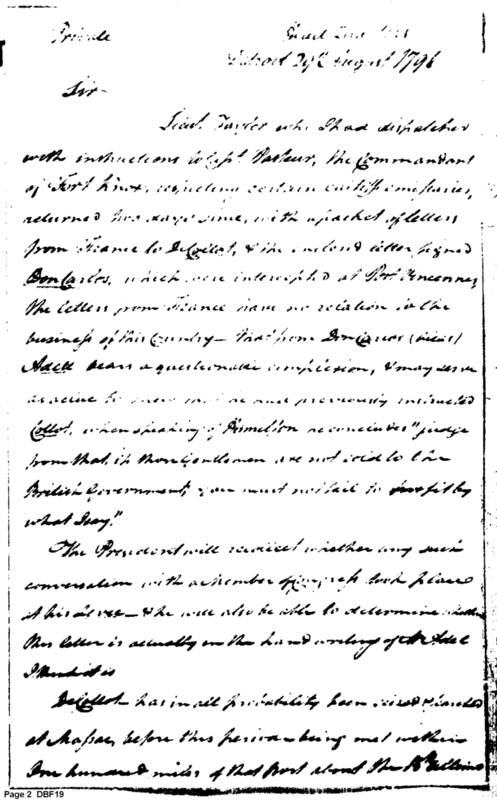 Private
Detroit 29th August 1796
Sir-
Lieut. Taylor who I had dispatched
with instructions to Capt. Pasteur, the Commandant
of Fort Knox, respecting certain emissaries,
returned two days since, with a packet of letters
from France to DeCollot, & the inclosed letter signed
Don Carlos, which were intercepted at Port Vincennes,
the letters from France have no relation to the
business of this Country - that from Don Carlos
Adett bears a questionable complexion, & may serve
as a clue to had previously instructed
Collot, when speaking of he concludes "judge
from that, if those Gentlemen are not sold to the
British Government, you must not fail to profit by
what I say."
The President will recollect whether any such
conversation with a Member of Congress took place
at his Levee - & he will also be able to determine whether
this letter is actually in the hand writing of Mr Adet
I think it is
DeCollot has in all probability been seized &
at Massac, before this period - being met within
One hundred miles of that Port about the
Page 2 DBF19